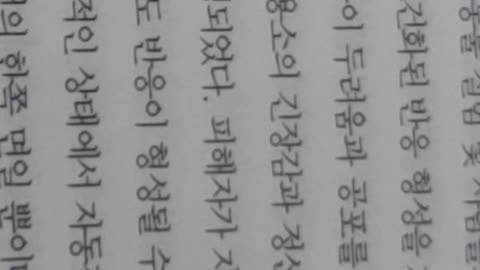 실험 및
건화된 반응 형성을
이 두려움과 공포를
용소의 긴장감과
되었다. 피해자가
도 반응이 형성될 수
적인 상태에서 자동
의 한쪽 면일 뿐이